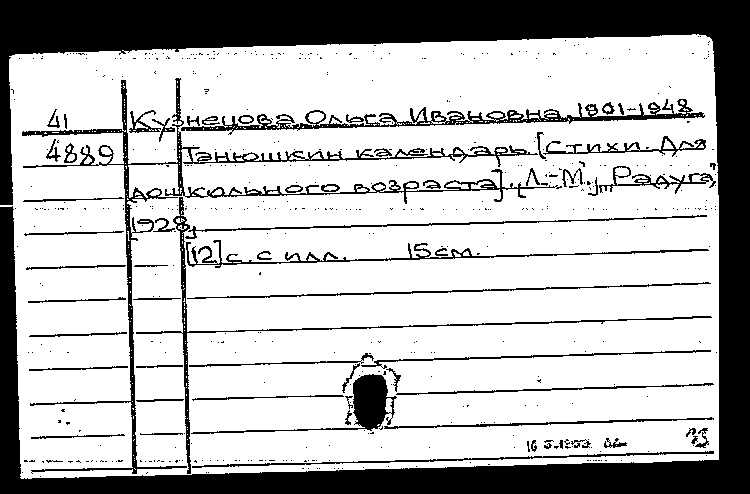 41 Кузнецова Ольга Ивановна, 1901-1948
4889 Танюшкин календарь [Стихи. Для
дошкольного возраста]. [Л.-М.], "Радуга",
[1928]
[12] с. с илл. 15 см.